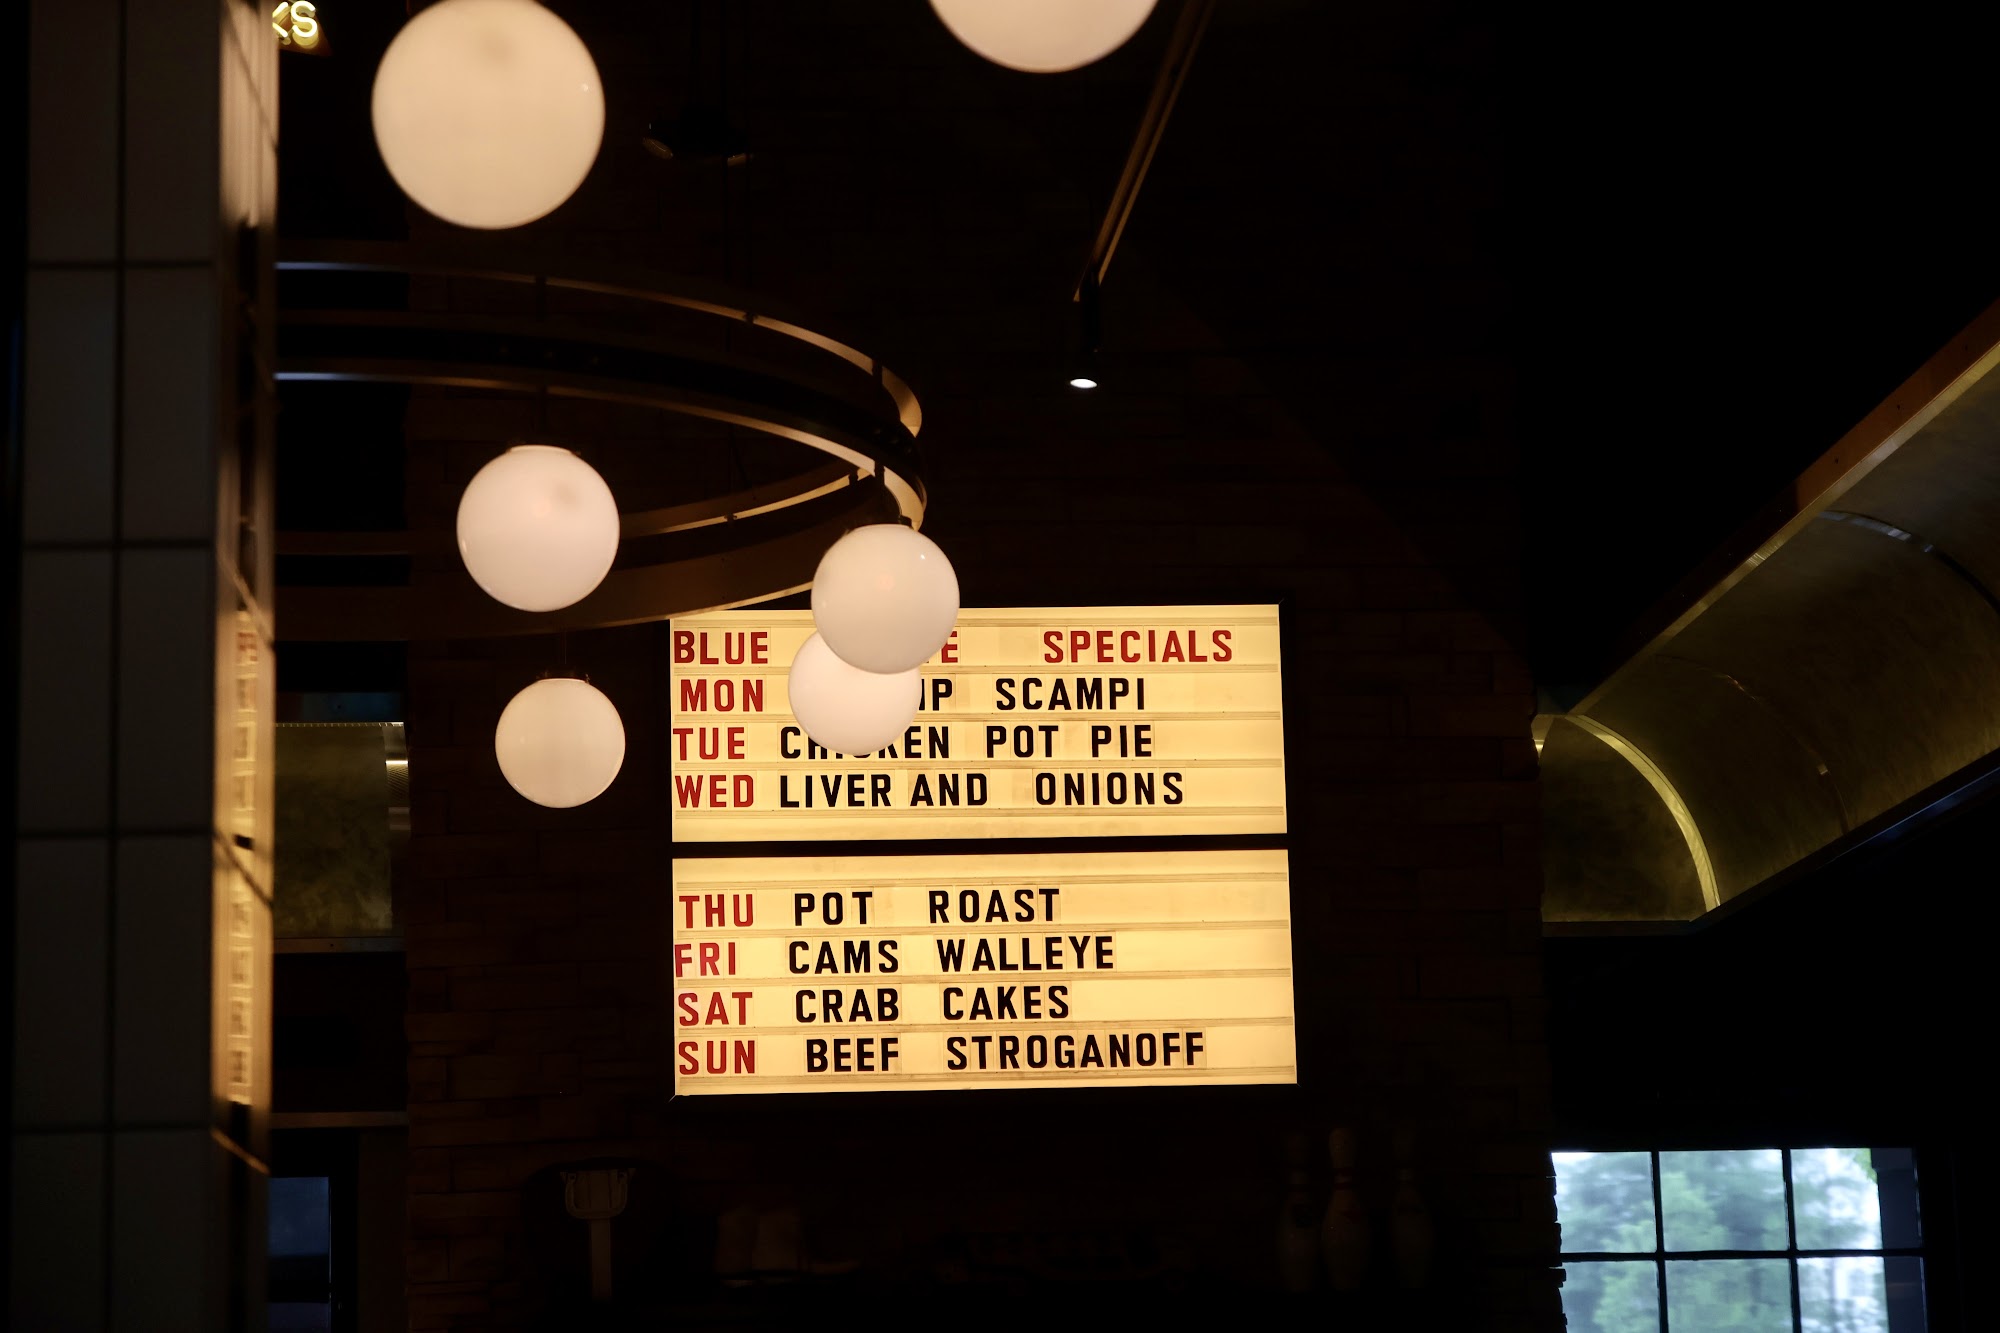 BLUE SPECIALS
MON SCAMPI
TUE CHICKEN POT PIE
WED LIVER AND ONIONS
THU POT ROAST
FRI CAMS WALLEYE
SAT CRAB CAKES
SUN BEEF STROGANOFF